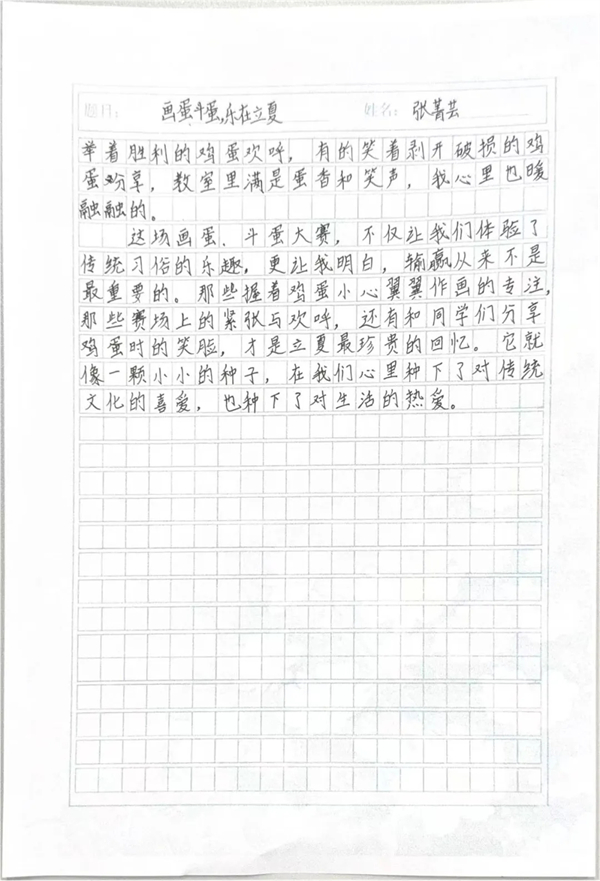 题目: 画蛋斗蛋,乐在立夏 姓名: 张菁芸
举着胜利的鸡蛋欢呼，有的笑着剥开破损的鸡
蛋分享，教室里满是蛋香和笑声，我心里也暖
融融的。
这场画蛋、斗蛋大赛，不仅让我们体验了
传统习俗的乐趣，更让我明白，输赢从来不是
最重要的。那些握着鸡蛋小心翼翼作画的专注，
那些赛场上的紧张与欢呼，还有和同学们分享
鸡蛋时的笑脸，才是立夏最珍贵的回忆。它就
像一颗小小的种子，在我们心里种下了对传统
文化的喜爱，也种下了对生活的热爱。